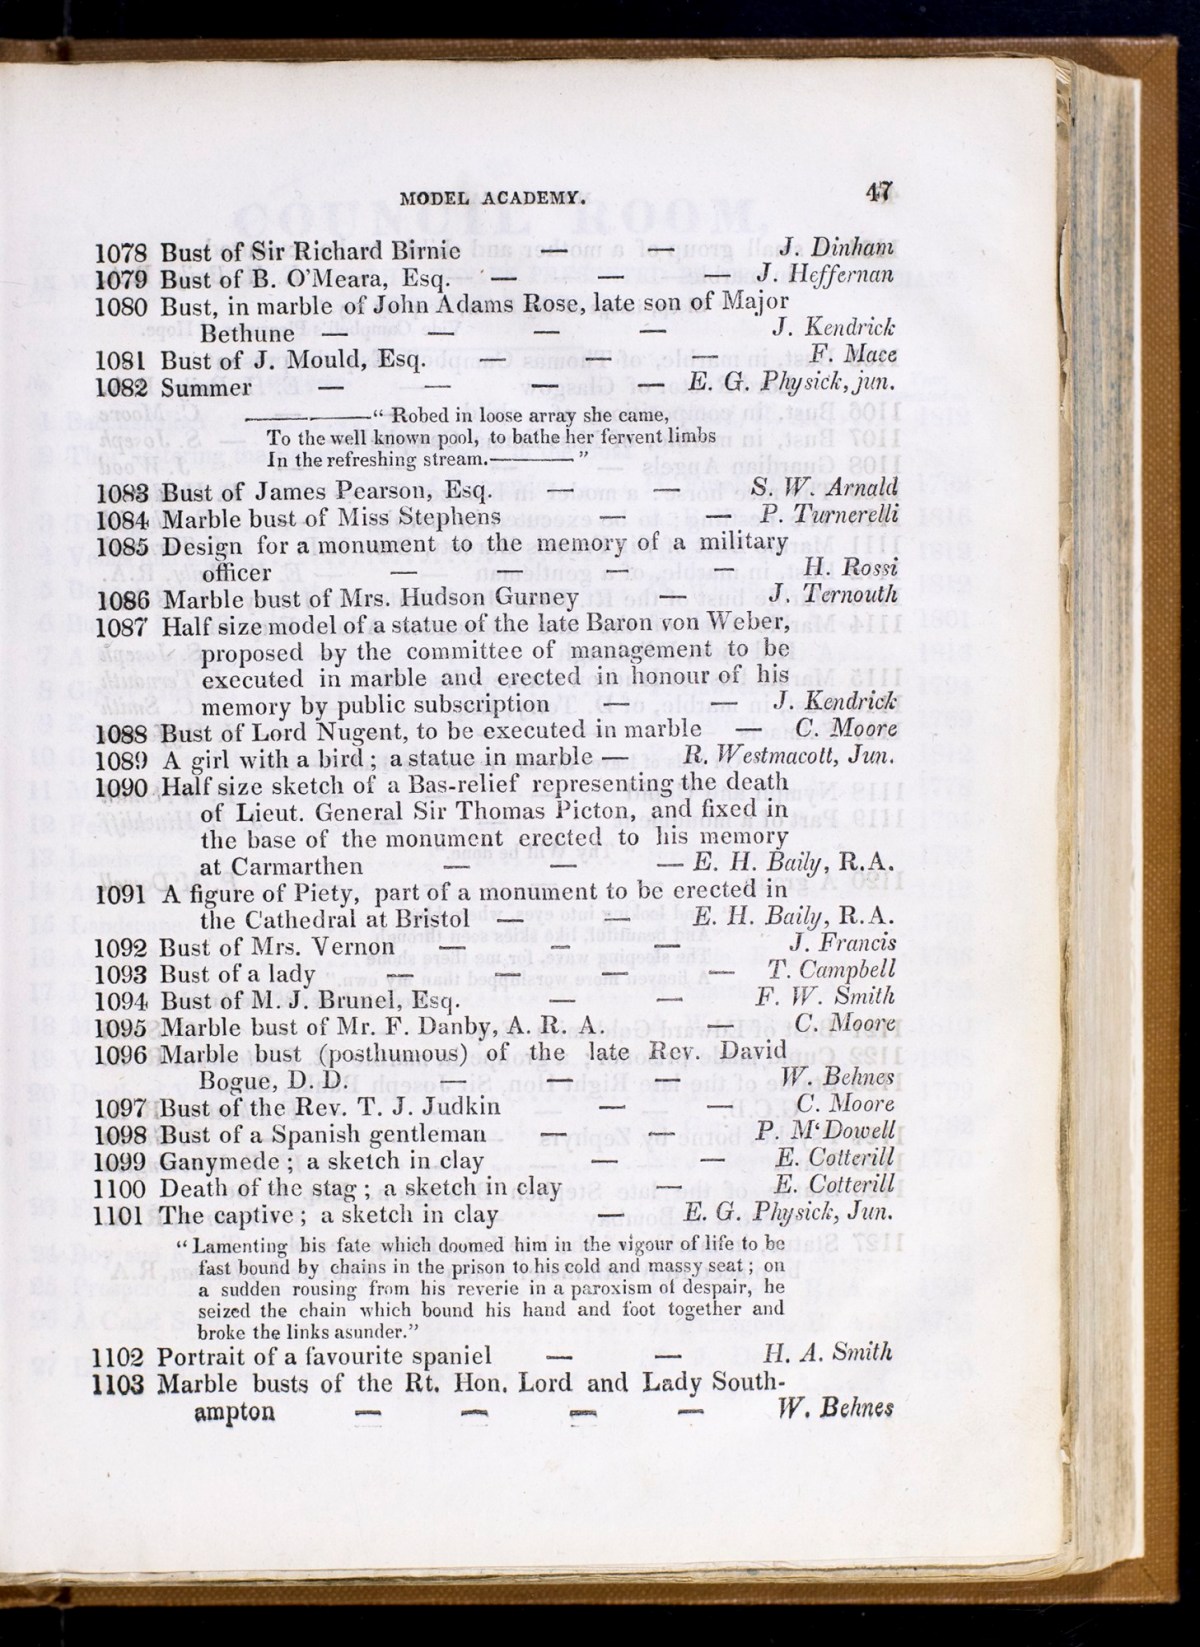 MODEL ACADEMY. 47
1078 Bust of Sir Richard Birnie — — J. Dinham
1079 Bust of B. O'Meara, Esq. — — — J. Heffernan
1080 Bust, in marble of John Adams Rose, late son of Major
Bethune — — — — J. Kendrick
1081 Bust of J. Mould, Esq. — — — F. Mace
1082 Summer — — — — E. G. Physick, jun.
————“ Robed in loose array she came,
To the well known pool, to bathe her fervent limbs
In the refreshing stream.———”
1083 Bust of James Pearson, Esq. — — S. W. Arnald
1084 Marble bust of Miss Stephens — — P. Turnerelli
1085 Design for a monument to the memory of a military
officer — — — — H. Rossi
1086 Marble bust of Mrs. Hudson Gurney — J. Ternouth
1087 Half size model of a statue of the late Baron von Weber,
proposed by the committee of management to be
executed in marble and erected in honour of his
memory by public subscription — — J. Kendrick
1088 Bust of Lord Nugent, to be executed in marble — C. Moore
1089 A girl with a bird ; a statue in marble — R. Westmacott, Jun.
1090 Half size sketch of a Bas-relief representing the death
of Lieut. General Sir Thomas Picton, and fixed in
the base of the monument erected to his memory
at Carmarthen — — — E. H. Baily, R.A.
1091 A figure of Piety, part of a monument to be erected in
the Cathedral at Bristol — — E. H. Baily, R.A.
1092 Bust of Mrs. Vernon — — — J. Francis
1093 Bust of a lady — — — — T. Campbell
1094 Bust of M. J. Brunel, Esq. — — F. W. Smith
1095 Marble bust of Mr. F. Danby, A. R. A. — C. Moore
1096 Marble bust (posthumous) of the late Rev. David
Bogue, D. D. — — — W. Behnes
1097 Bust of the Rev. T. J. Judkin — — C. Moore
1098 Bust of a Spanish gentleman — — P. M‘Dowell
1099 Ganymede ; a sketch in clay — — E. Cotterill
1100 Death of the stag ; a sketch in clay — E. Cotterill
1101 The captive ; a sketch in clay — E. G. Physick, Jun.
“ Lamenting his fate which doomed him in the vigour of life to be
fast bound by chains in the prison to his cold and massy seat ; on
a sudden rousing from his reverie in a paroxism of despair, he
seized the chain which bound his hand and foot together and
broke the links asunder.”
1102 Portrait of a favourite spaniel — — H. A. Smith
1103 Marble busts of the Rt. Hon. Lord and Lady South-
ampton — — — — W. Behnes